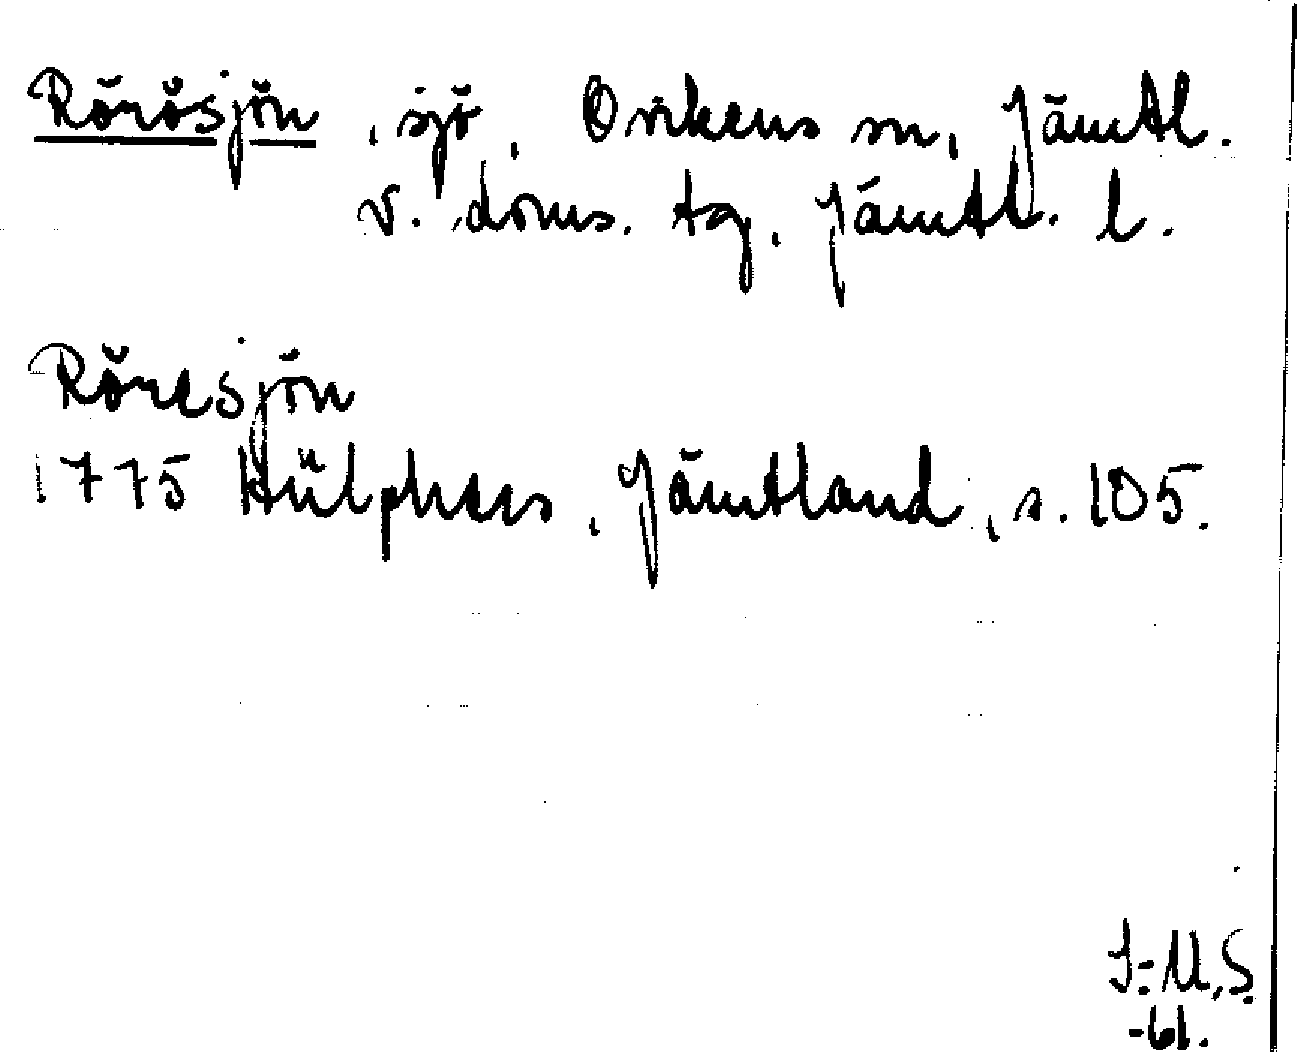 Rörösjön, sjö, Ovikens sn, Jämtl.
v. doms. tg, Jämtl. l.
Röresjön
1775 Hülphers, Jämtland, s. 105.
J-M,S.
-61.